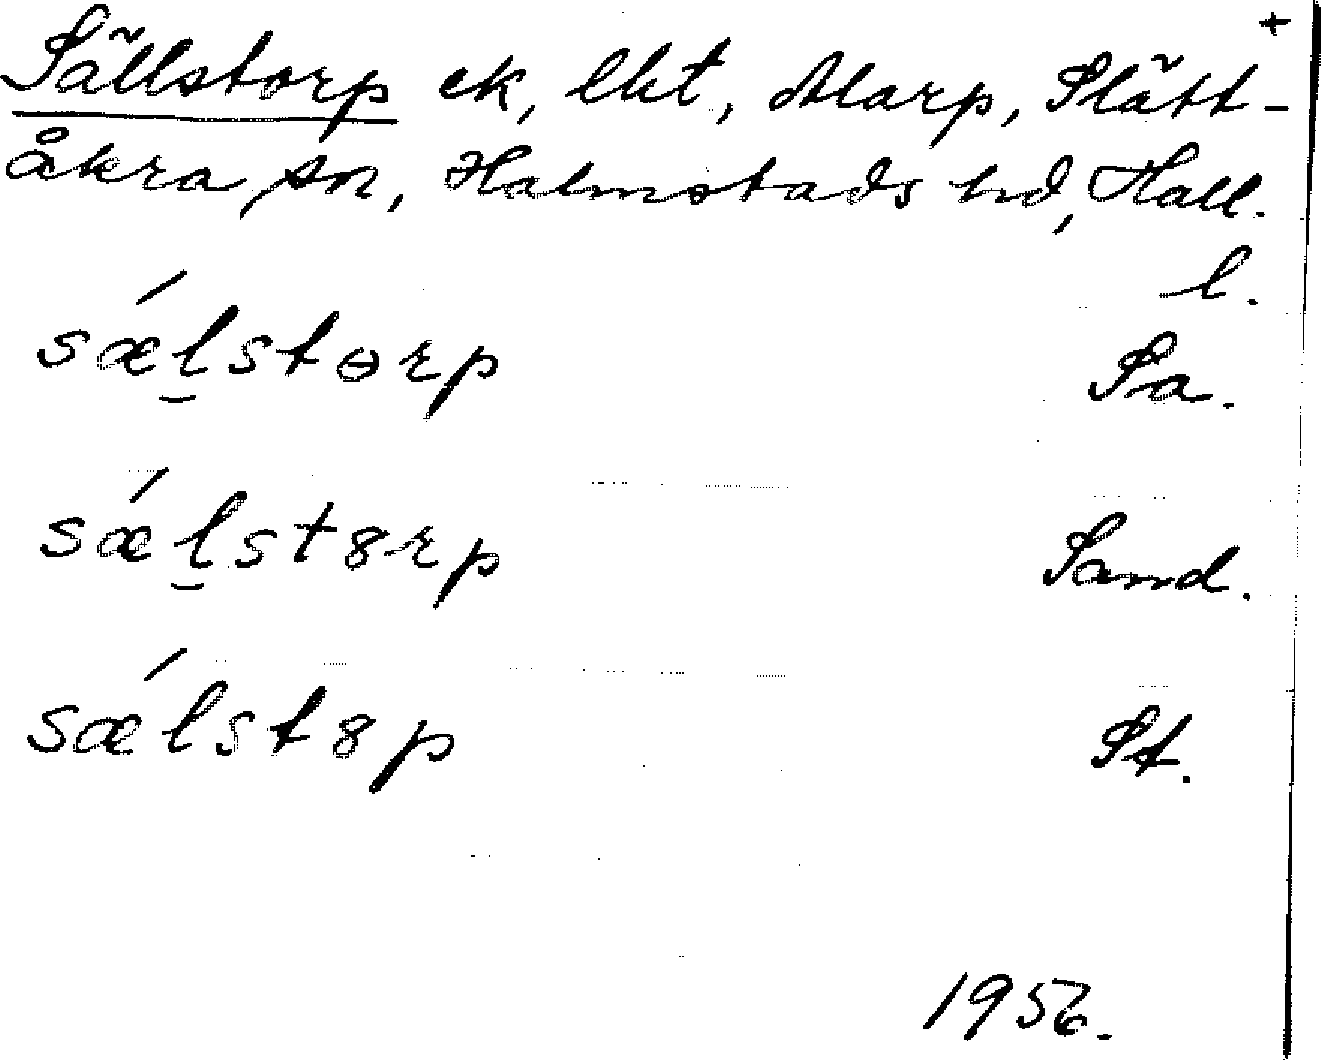 +
Sällstorp ek, lht, Marp, Slätt-
åkra sn, Halmstads hd, Hall.
l.
sǽl̠storp Sa.
sǽl̠st8rp Sand.
sǽlst8p St.
1956.